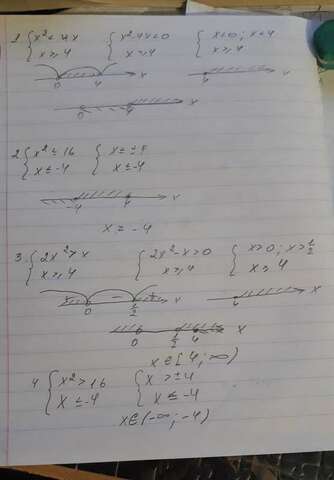 1. { x² < 4x { x² - 4x < 0 { x > 0; x < 4
{ x ≥ 4 { x ≥ 4 { x ≥ 4
0 4 x 4 x
0 4 x
2. { x² ≤ 16 { x ≤ ± 4
{ x ≤ -4 { x ≤ -4
-4 4 x
x = -4
3. { 2x² > x { 2x² - x > 0 { x > 0; x > 1/2
{ x ≥ 4 { x ≥ 4 { x ≥ 4
+ - + x
0 1/2 4 x
0 1/2 4 x
x ∈ [4; ∞)
4 { x² > 16 { x > ± 4
{ x ≤ -4 { x ≤ -4
x ∈ (-∞; -4)